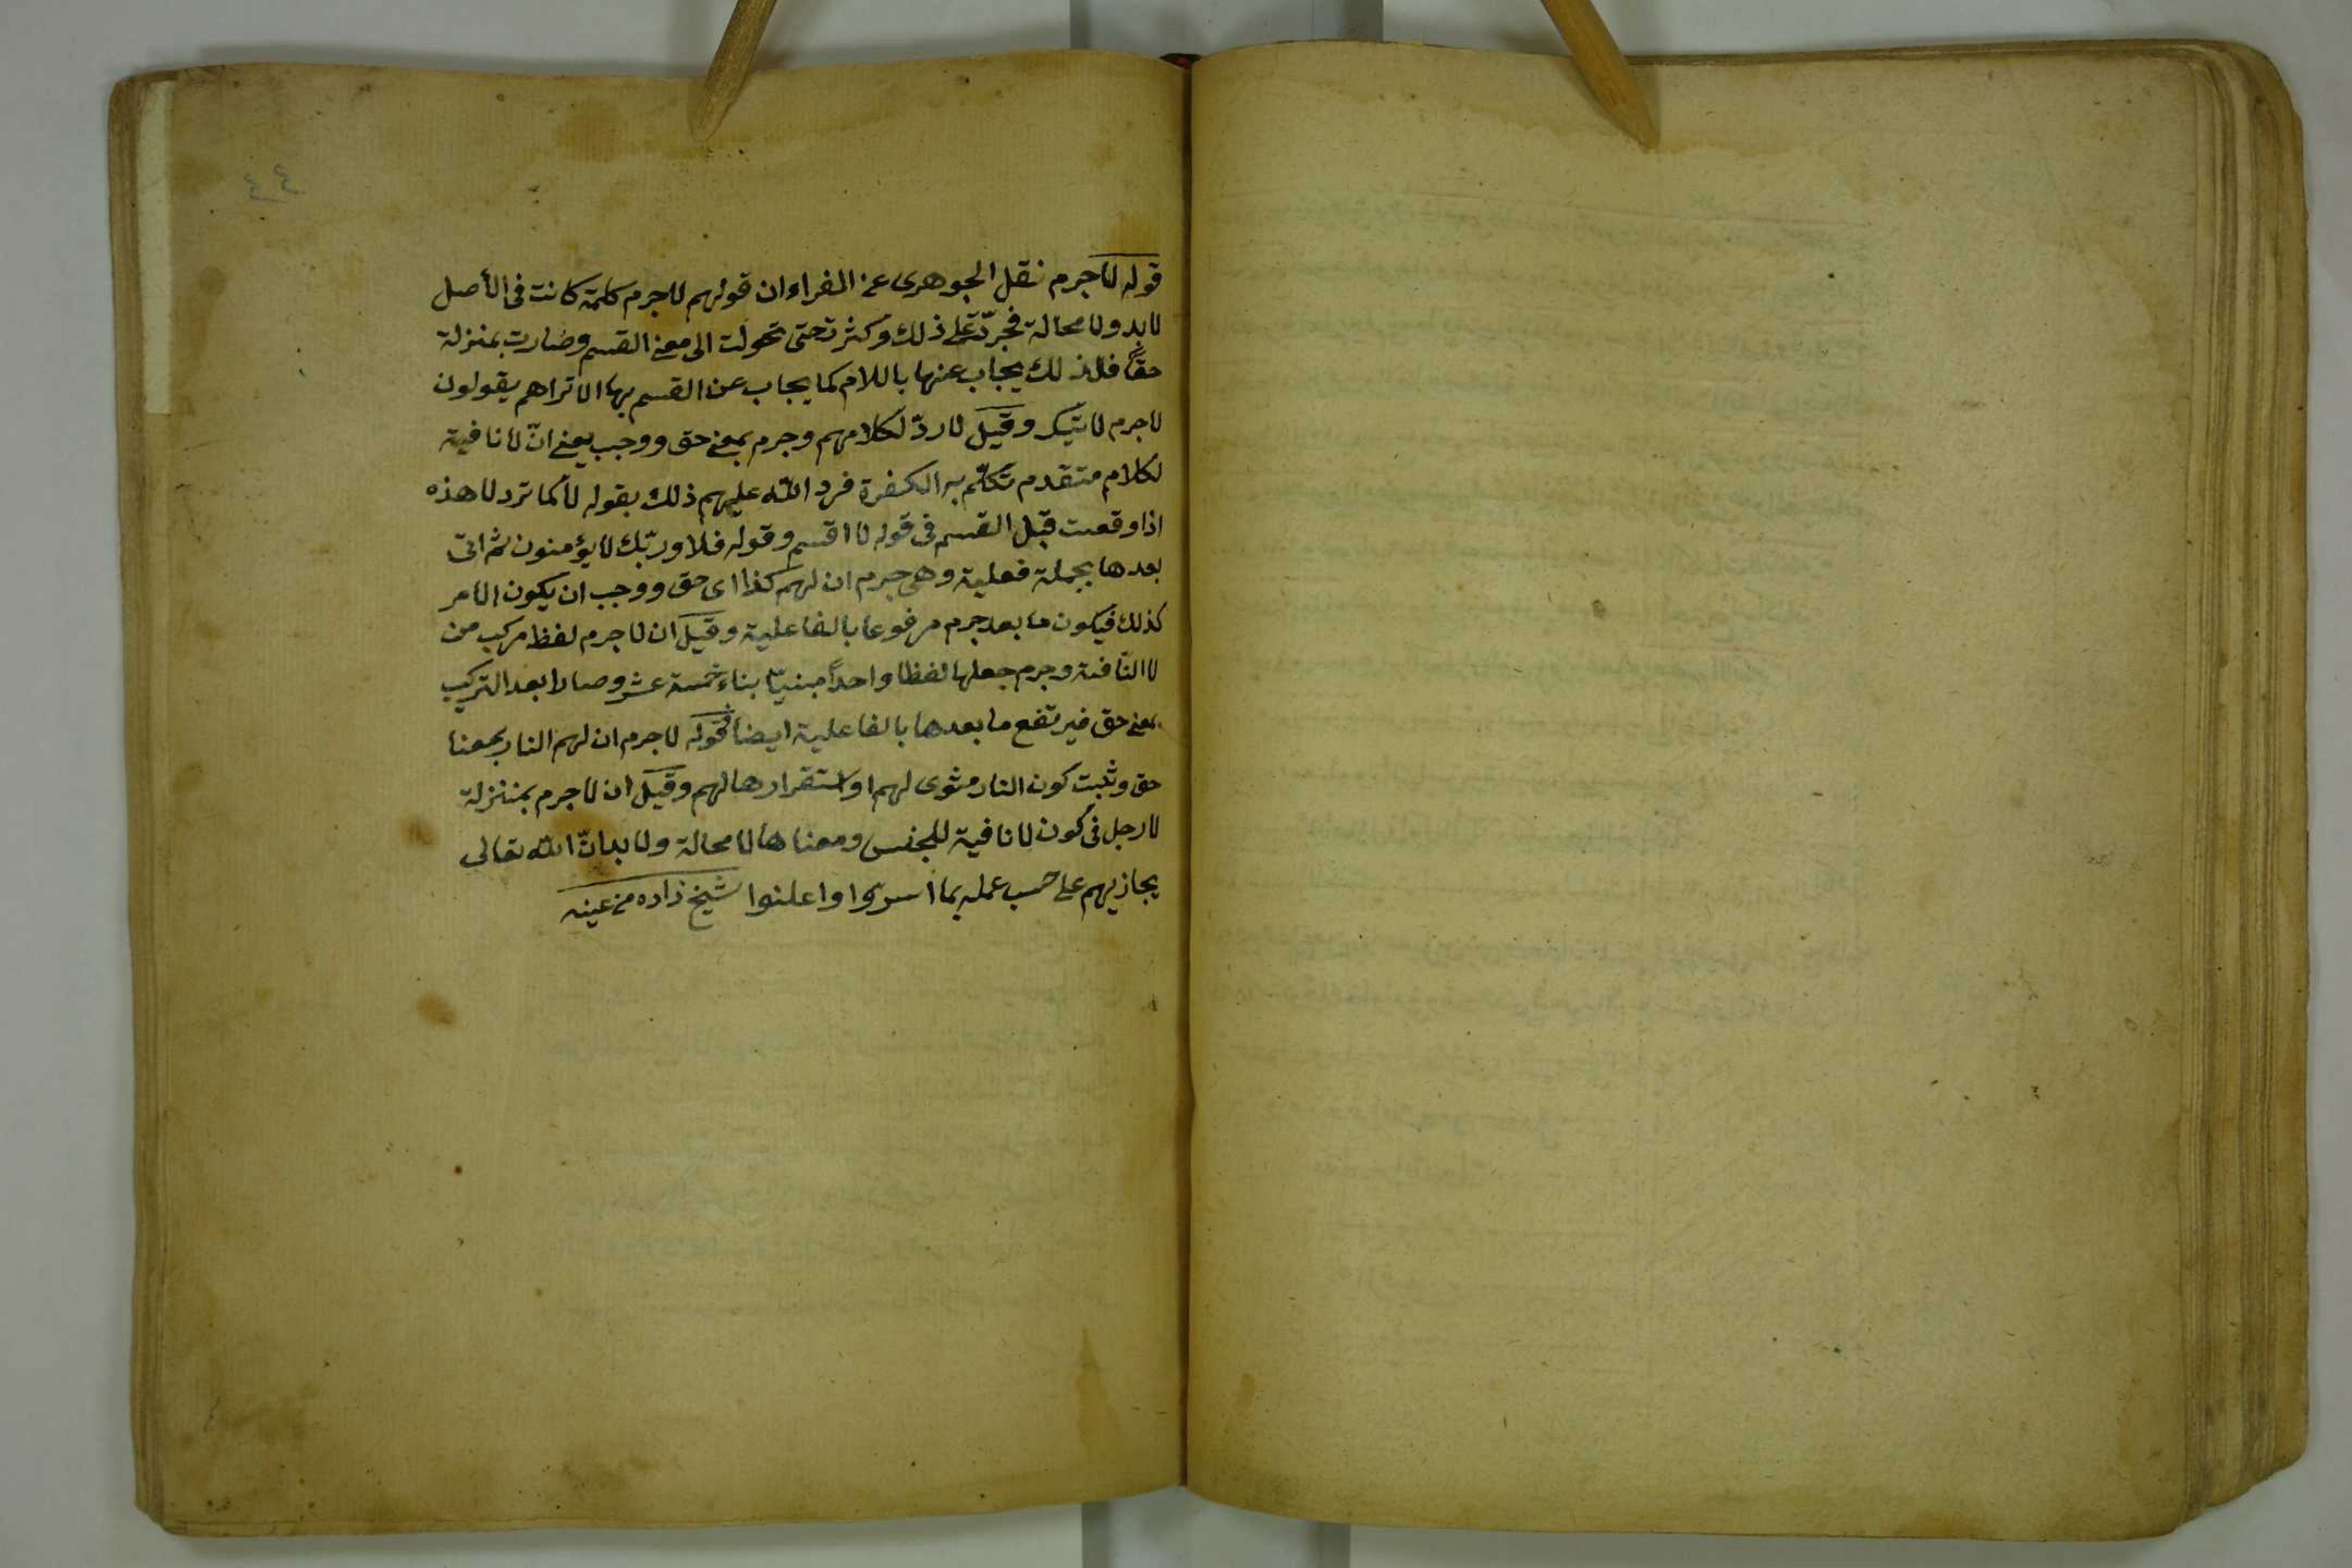 ٤٤
قوله لاجرم نقل الجوهرى عن الفراء ان قولهم لاجرم كلمة كانت فى الأصل
لابد ولا محالة فجرت على ذلك وكثرت حتى تحولت الى معنى القسم وصارت بمنزلة
حقا فلذلك يجاب عنها باللام كما يجاب عن القسم بها الا تراهم يقولون
لاجرم لاتيك وقيل لا ردّ لكلامهم وجرم بمعنى حق ووجب يعنى انّ لا نافية
لكلام متقدم تكلّم به الكفرة فرد الله عليهم ذلك بقوله لا كما ترد لا هذه
اذا وقعت قبل القسم فى قوله لا اقسم وقوله فلا وربّك لا يؤمنون ثم اتى
بعدها بجملة فعلية وهى جرم ان لهم كذا اى حق ووجب ان يكون الامر
كذلك فيكون ما بعد جرم مرفوعا بالفاعلية وقيل ان لاجرم لفظ مركب من
لا النّافية وجرم جعلها لفظا واحداً مبنيّا بناء خمسة عشر وصارا بعد التركيب
بمعنى حق فيرتفع ما بعدها بالفاعلية ايضا فقوله لاجرم ان لهم النار بمعنا
حق وثبت كون النار مثوى لهم او استقرارها لهم وقيل ان لاجرم بمنزلة
لا رجل فى كون لا نافية للجنس ومعناها لا محالة ولا بد انّ الله تعالى
يجازيهم على حسب عمله بما اسرّوا واعلنوا شيخ زاده من عينه